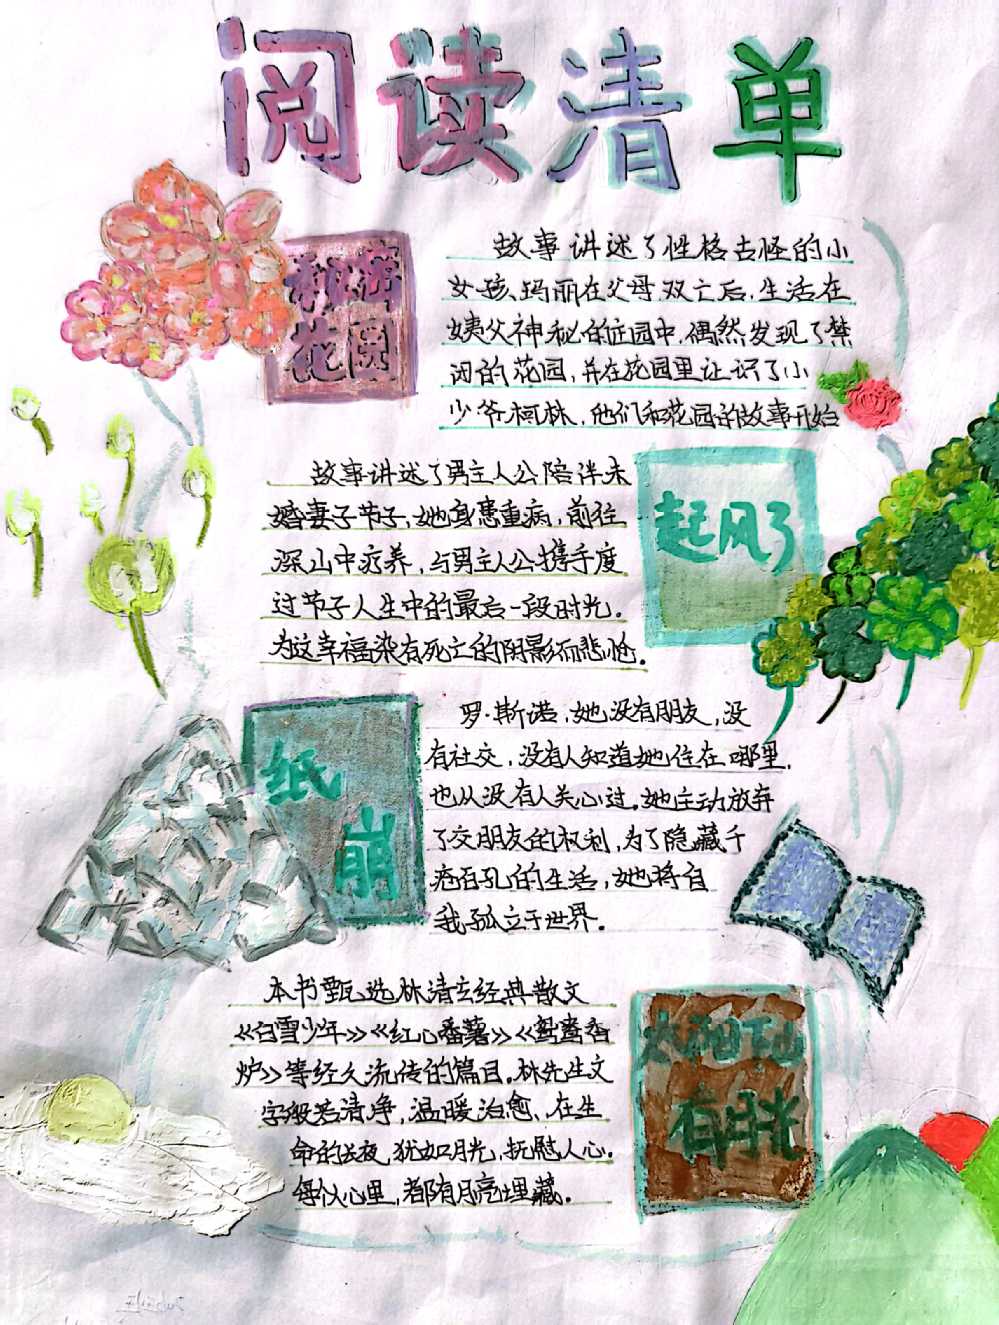 阅读清单
秘密
花园
故事讲述了性格古怪的小
女孩、玛丽在父母双亡后,生活在
姨父神秘的庄园中,偶然发现了禁
闭的花园,并在花园里认识了小
少爷柯林,他们和花园的故事开始
故事讲述了男主人公陪伴未
婚妻子节子,她身患重病,前往
深山中疗养,与男主人公携手度
过节子人生中的最后一段时光。
为这幸福染有死亡的阴影而悲怆。
起风了
纸
崩
罗·斯诺,她没有朋友,没
有社交,没有人知道她住在哪里,
也从没有人关心过。她主动放弃
了交朋友的权利,为了隐藏千
疮百孔的生活,她将自
我孤立于世界。
本书甄选林清玄经典散文
《白雪少年》《红心番薯》《鸳鸯香
炉》等经久流传的篇目。林先生文
字般若清净,温暖治愈、在生
命的长夜,犹如月光,抚慰人心。
每似心里,都有月亮埋藏。
有月光